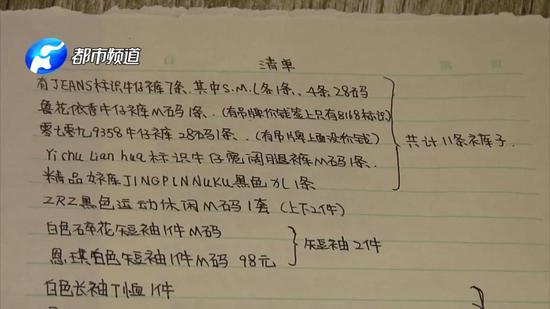 都市频道
清单
有JEANS标识牛仔裤7条.其中S.M.L各1条、4条28码
鲁花依香牛仔裤M码1条.(有吊牌价钱签上只有8168标识)
零七零九9358牛仔裤28码1条.(有吊牌上面没价钱)
Yi chu Lian hua标识牛仔宽阔腿裤M码1条.
共计11条裤子.
精品女裤JINGPINNUKU黑色XL1条
ZRZ黑色运动休闲M码1套(上下2件)
白色碎花短袖1件M码
恩琪白色短袖1件M码 98元
短袖2件
白色长袖T恤1件